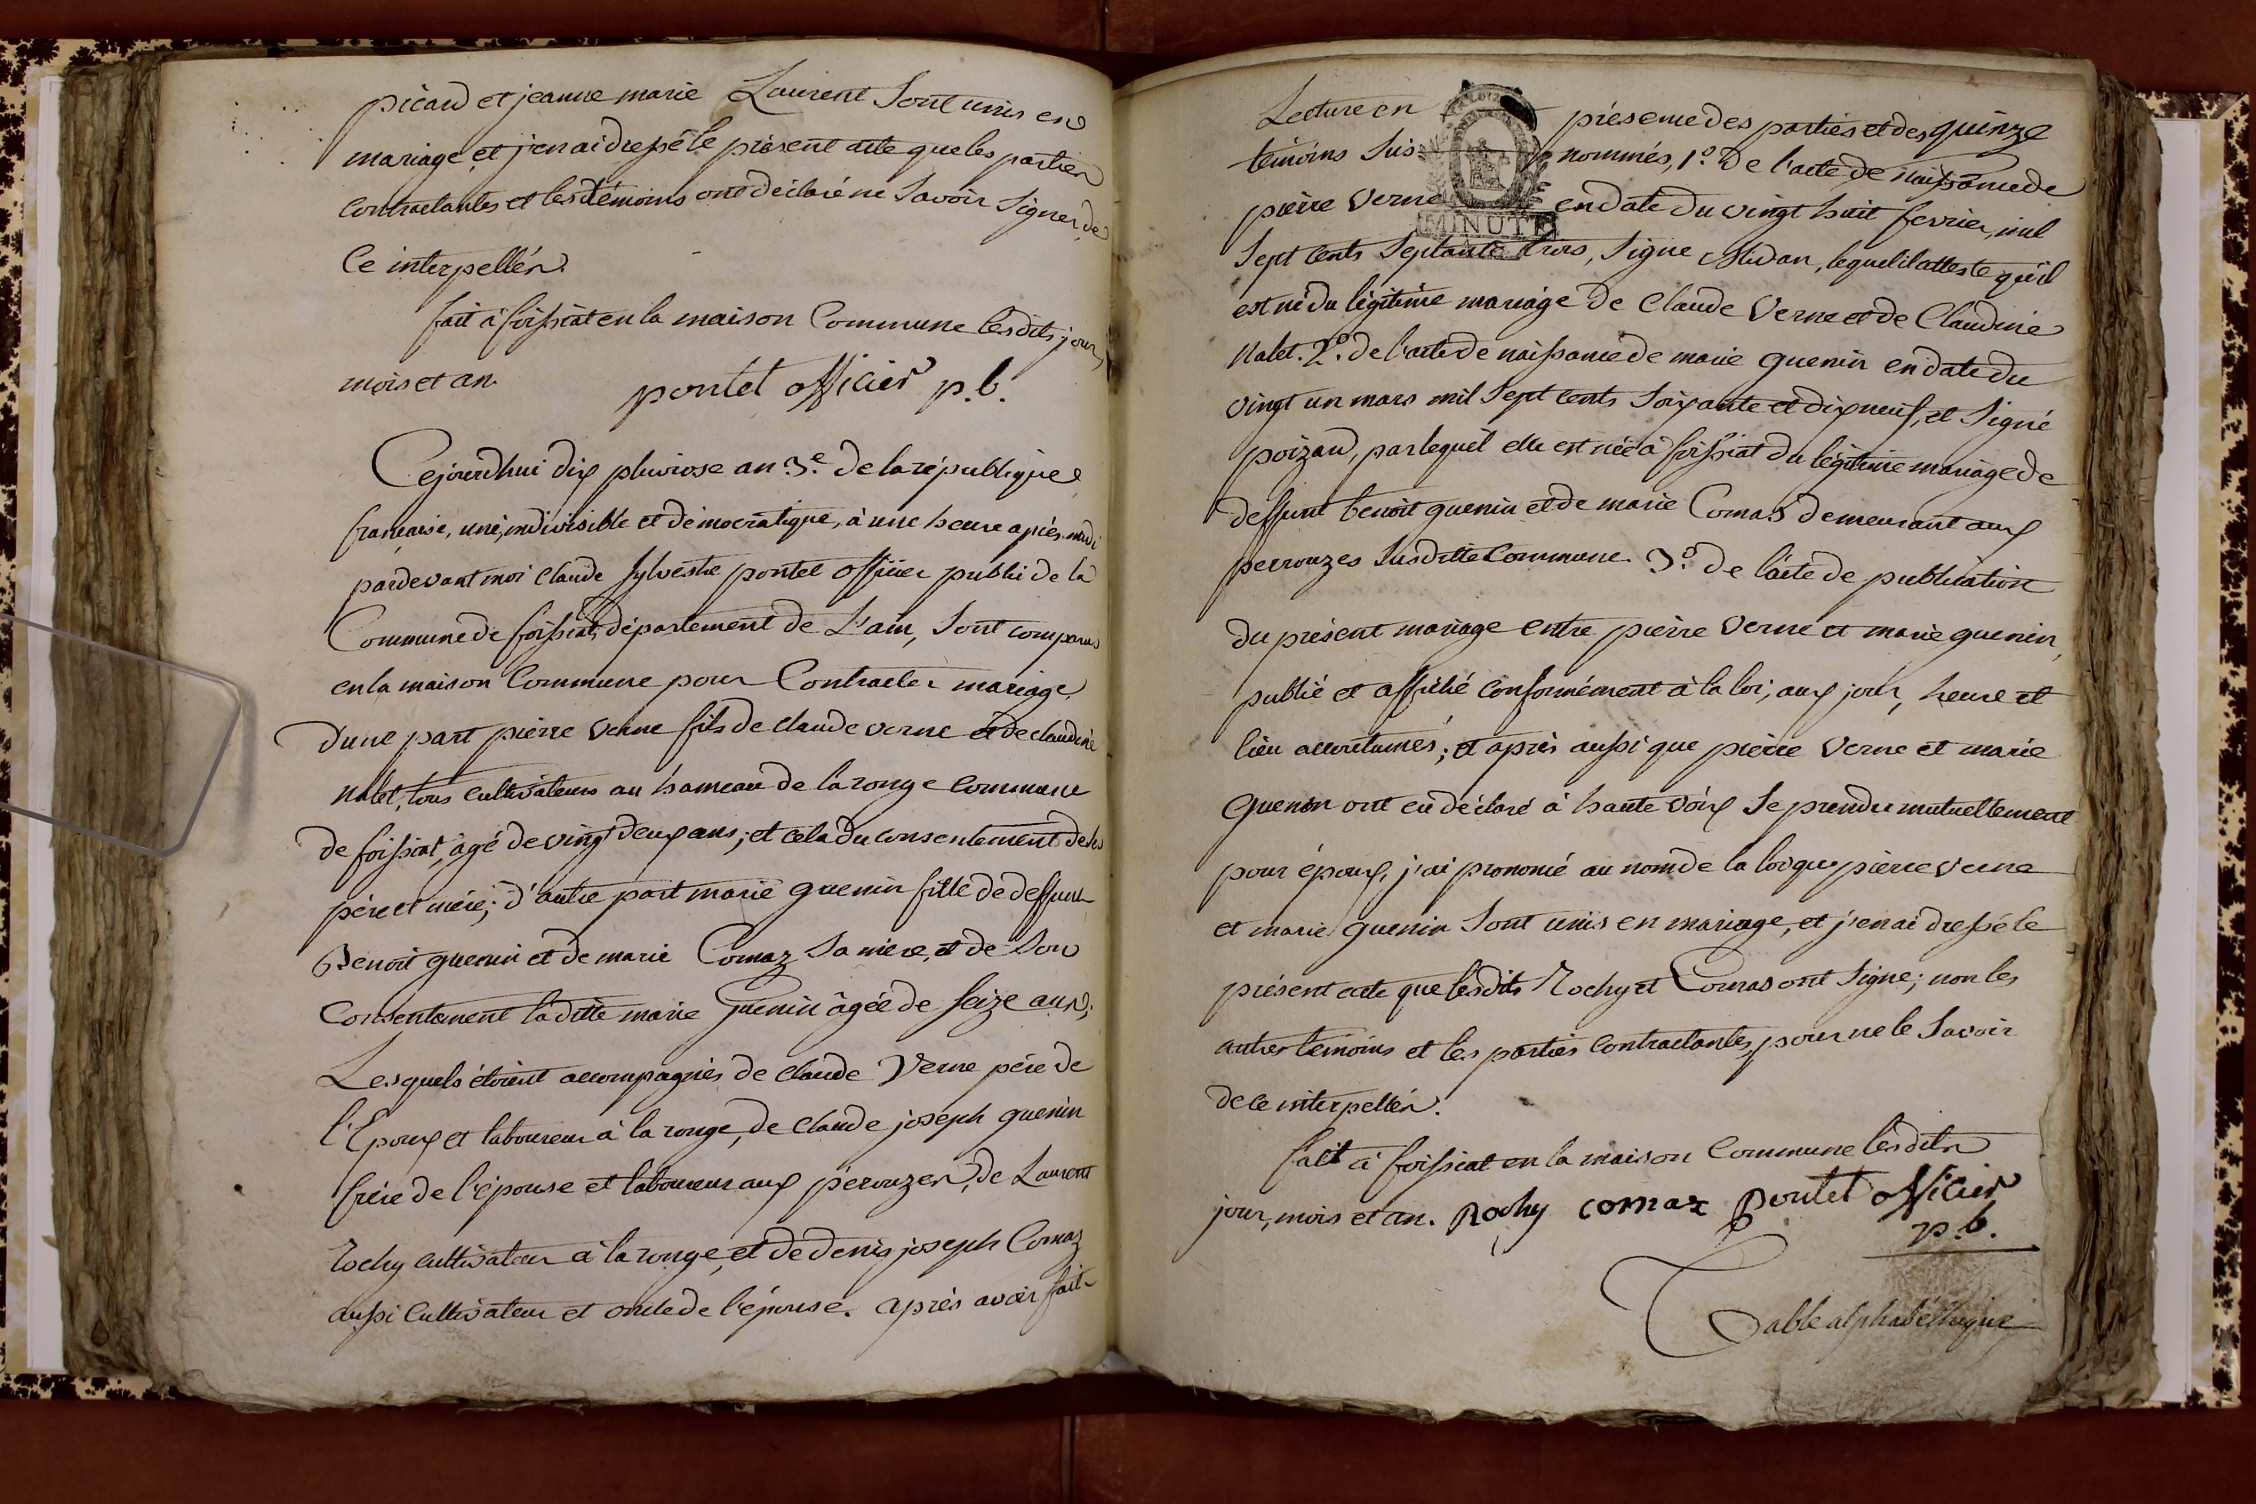 picard et jeanne marie Laurent sont unis en
mariage, et j'en ai dressé le présent acte que les parties
contractantes et les témoins ont déclaré ne savoir signer de
ce interpellés.
fait à foissiat en la maison Commune lesdits jour,
mois et an.
pontet officier p.b.
Cejourdhui dix pluviose an 3e. de la république
française, une, indivisible et démocratique, à une heure après midi
pardevant moi claude sylvestre pontet officier public de la
Commune de foissiat, département de L'ain, sont comparus
en la maison Commune pour Contracter mariage
d'une part pierre verne fils de claude verne et de claudine
Nalet, tous cultivateurs au hameau de la ronge commune
de foissiat, âgé de vingt deux ans; et cela du consentement de ses
père et mère; d'autre part marie quenin fille de deffunt
Benoit quenin et de marie Comaz sa mère, et de son
Consentement laditte marie Quenin âgée de seize ans;
Lesquels étoient accompagnés de claude Verne père de
l'Epoux et laboureur à la ronge, de claude joseph quenin
frère de l'épouse et laboureur aux pérouzes, de Laurent
rochy cultivateur à la ronge, et de denis joseph Comaz
aussi cultivateur et oncle de l'épouse. après avoir fait
Lecture en présence des parties et des quinze
témoins sus nommés, 1º. de l'acte de naissance de
pierre Verne en date du vingt huit fevrier, mil
sept cents septante trois, signé Midan, lequel il atteste qu'il
est né du légitime mariage de Claude Verne et de Claudine
Nalet. 2º. de l'acte de naissance de marie quenin en date du
vingt un mars mil sept cents soixante et dix neuf, et signé
poizad, par lequel elle est née à foissiat du légitime mariage de
deffunt benoit quenin et de marie Comas demeurant aux
perrouzes susditte Commune. 3º. de l'acte de publication
du présent mariage entre pierre Verne et marie quenin,
publié et affiché conformément à la loi; aux jour, heure et
lieu accoutumés; et après aussi que pierre Verne et marie
Quenin ont eu déclaré à haute voix se prendre mutuellement
pour époux, j'ai prononcé au nom de la loi que pierre Verne
et marie quenin sont unis en mariage, et j'en ai dressé le
présent acte que lesdits Rochy et Comas ont signé; non les
autres témoins et les parties contractantes, pour ne le savoir
de ce interpellés.
fait à foissiat en la maison Commune lesdits
jour, mois et an. Rochy comaz pontet officier
p.b.
MINUTE
Table alphabéthique